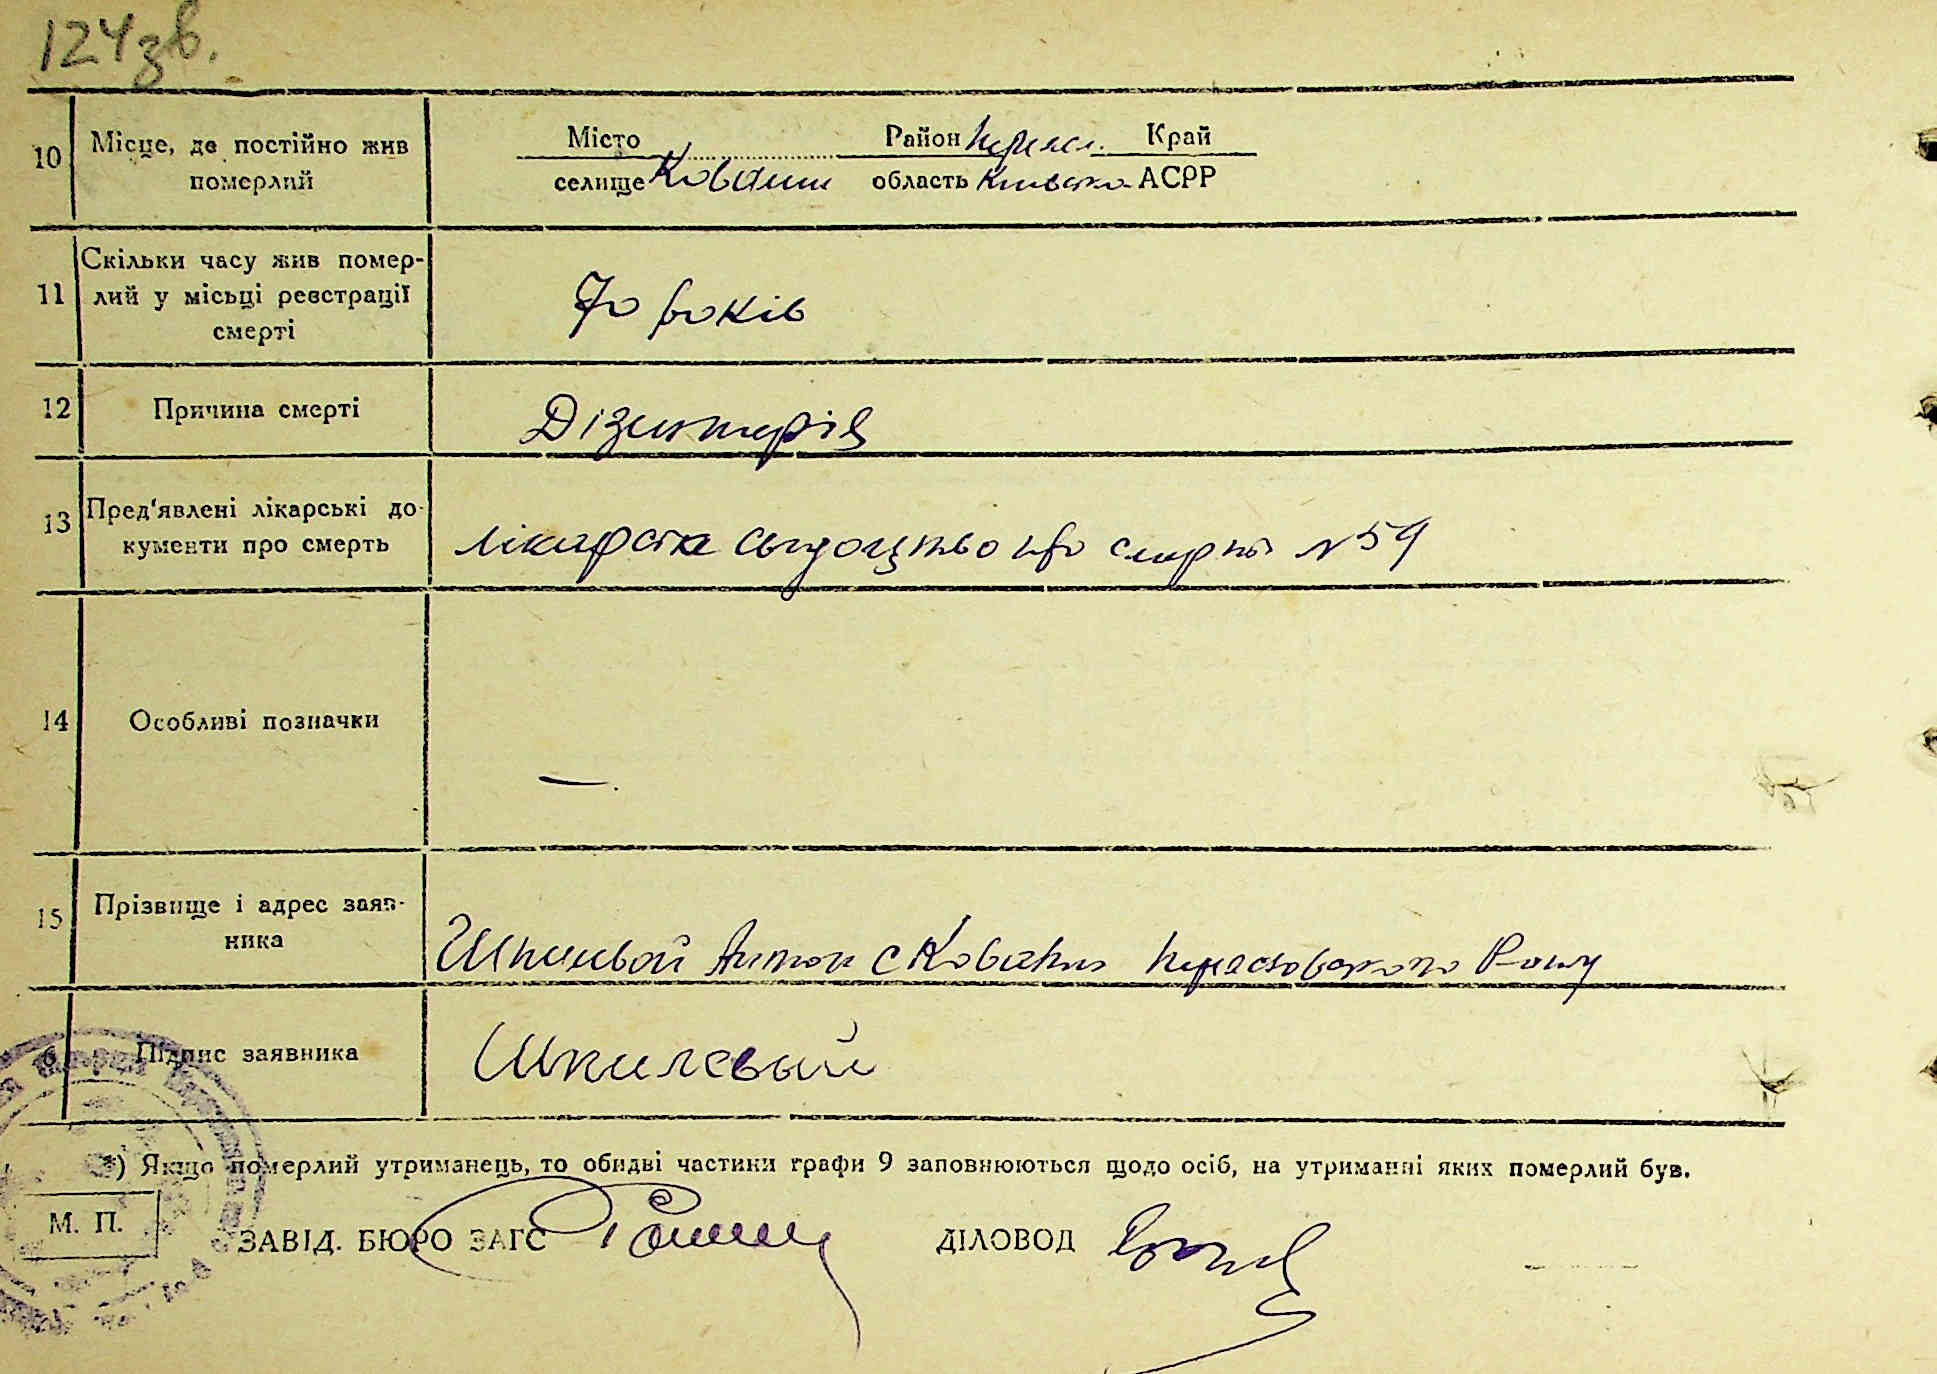 124 зв.
10 Місце, де постійно жив померлий
Місто Район Переясл. Край
селище Ковалин область Київська АСРР
11 Скільки часу жив помер-
лий у місьці реєстрації
смерті
70 років
12 Причина смерті
Дізинтерія
13 Пред'явлені лікарські до-
кументи про смерть
лікарске свідоцтво про смерть №59
14 Особливі позначки
—
15 Прізвище і адрес заяв-
ника
Шпильвой Антон с Ковалин Переяславського Р-ону
6 Підпис заявника
Шпилевый
*) Якщо померлий утриманець, то обидві частини графи 9 заповнюються щодо осіб, на утриманні яких померлий був.
М. П.
ЗАВІД. БЮРО ЗАГС ДІЛОВОД